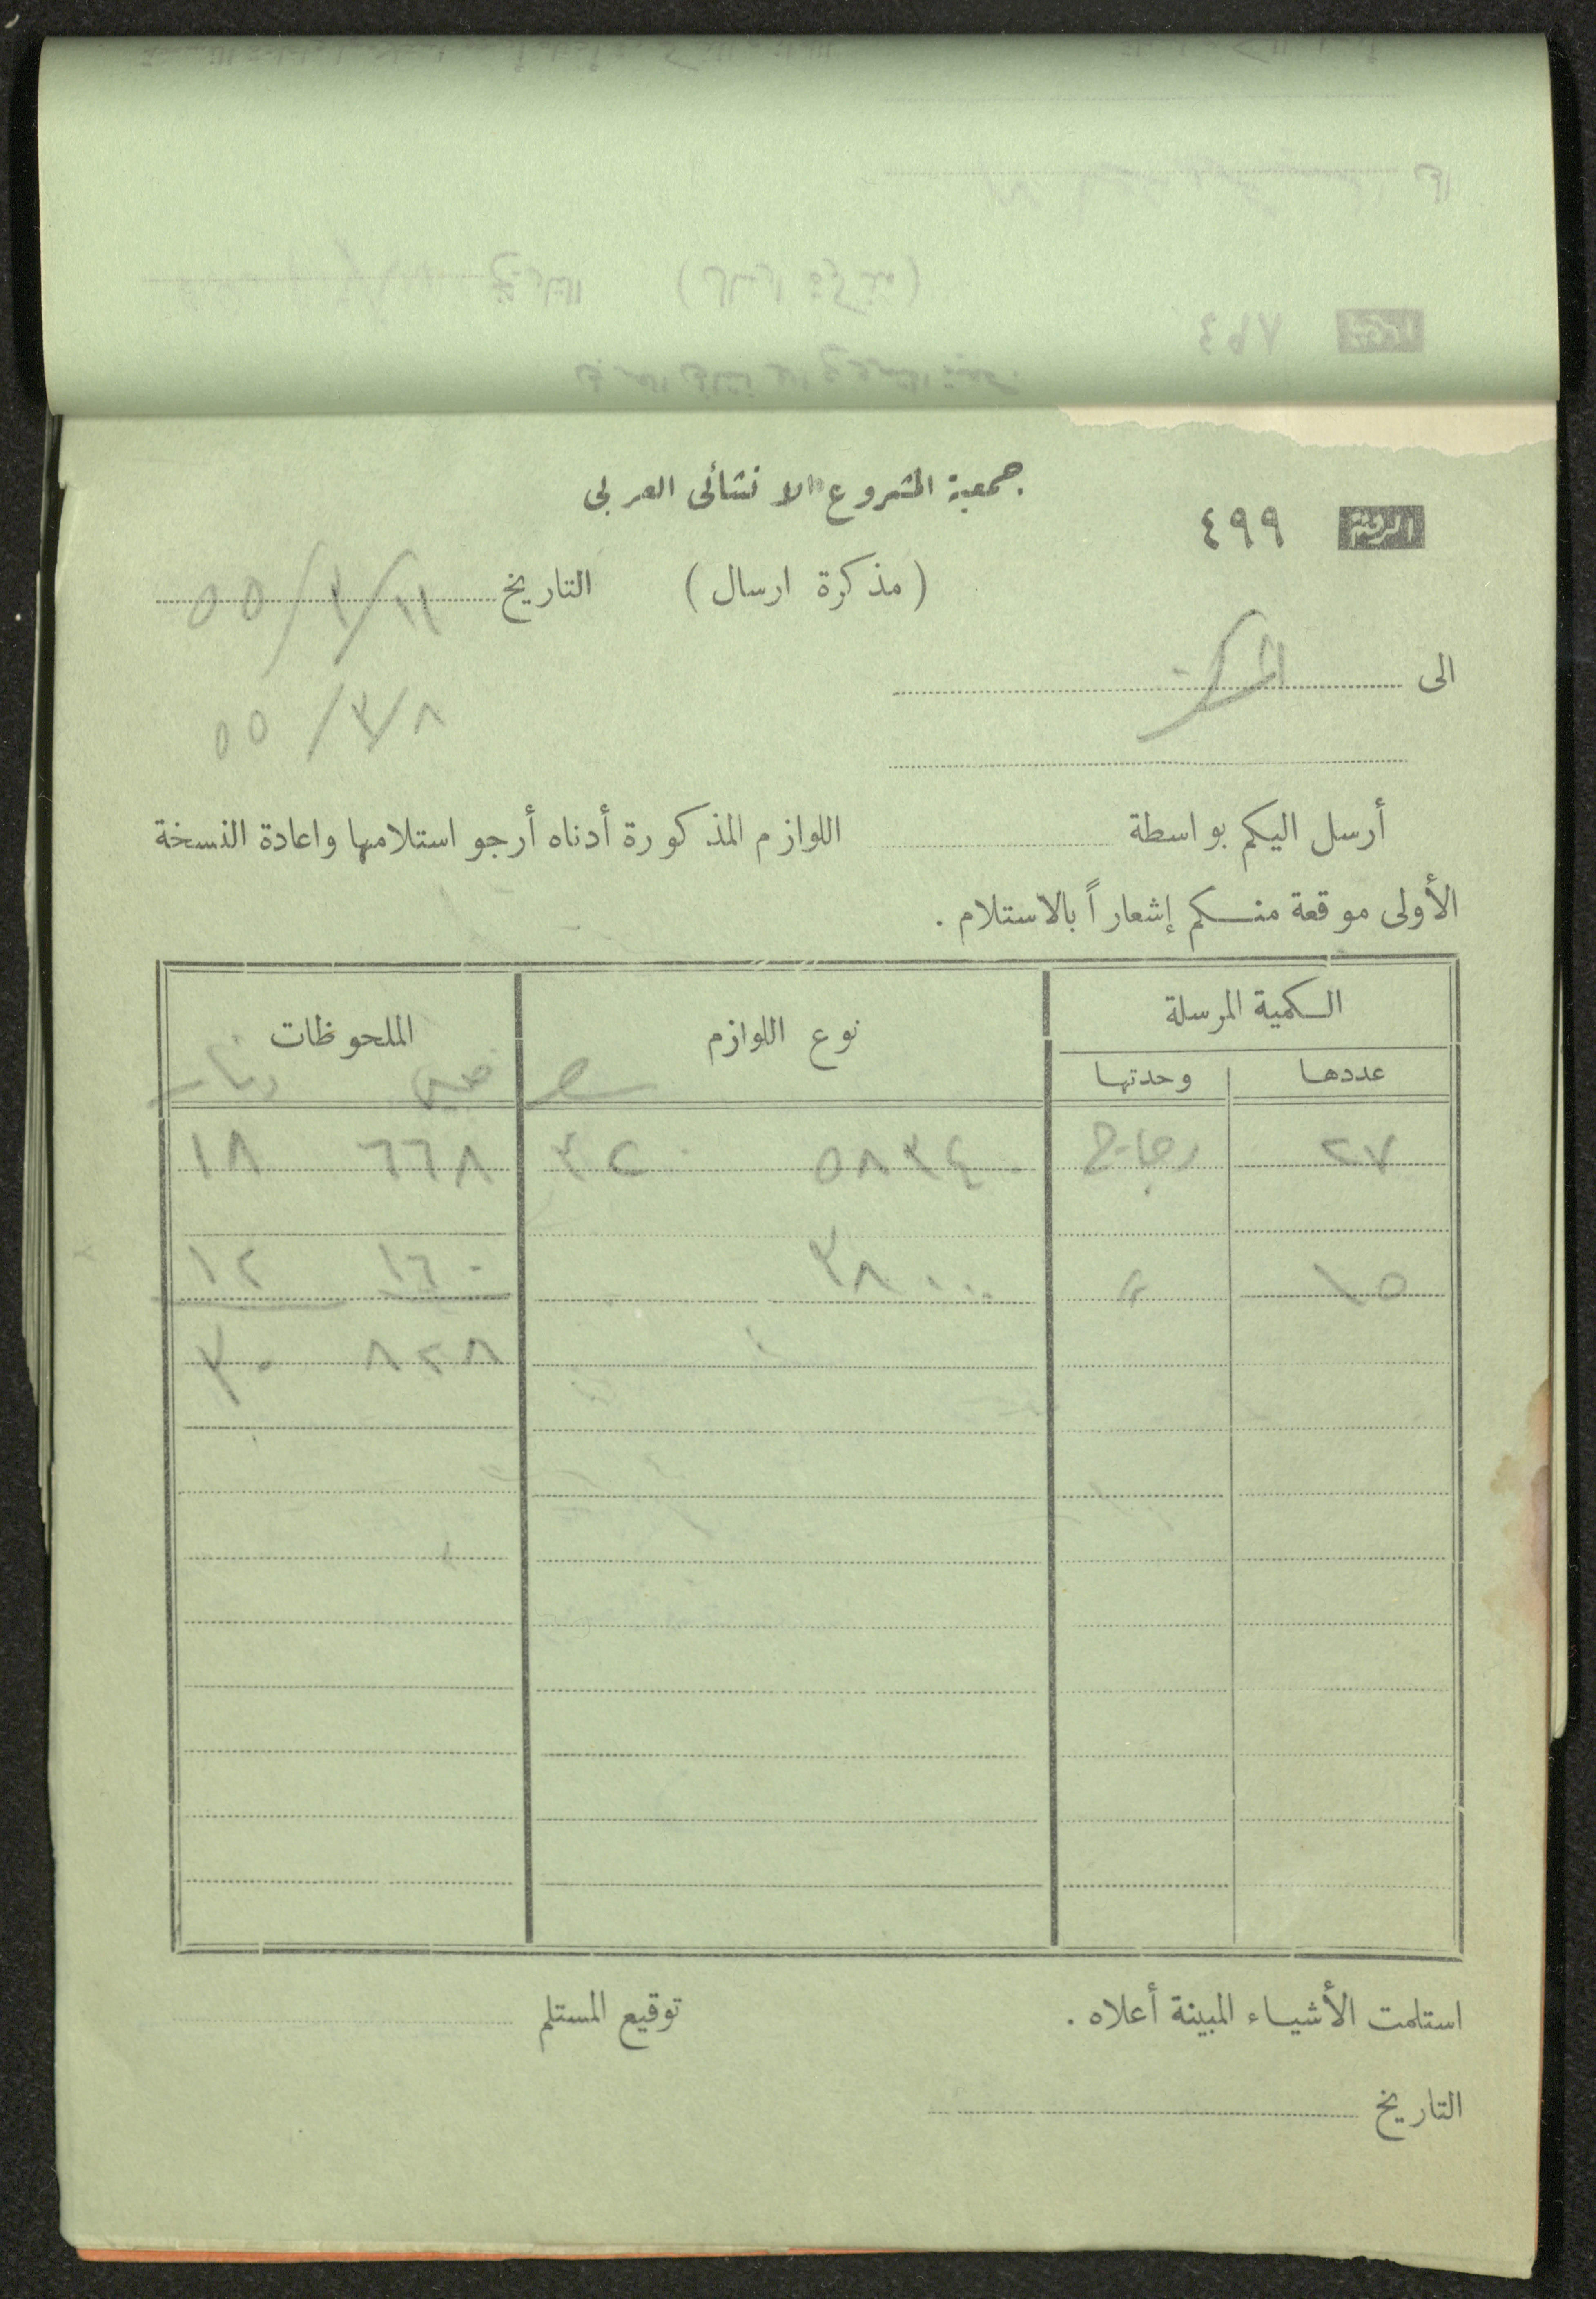 جمعية المشروع الانشائى العربى
الرقم ٤٩٩
(مذكرة ارسال) التاريخ
٥٥/٣/٨
الى
أرسل اليكم بواسطة اللوازم المذكورة أدناه أرجو استلامها واعادة النسخة
الأولى موقعة منكم إشعاراً بالاستلام .
الكمية المرسلة نوع اللوازم الملحوظات
عددها وحدتها سعر فلس دينار
٢٧ دجاج ٥٨٣٤٠ ٣٢٠ ٦٦٨ ١٨
١٥ " ٣٨٠٠٠ ١٦٠ ١٢
٨٢٨ ٣٠
استلمت الأشياء المبينة أعلاه . توقيع المستلم
التاريخ